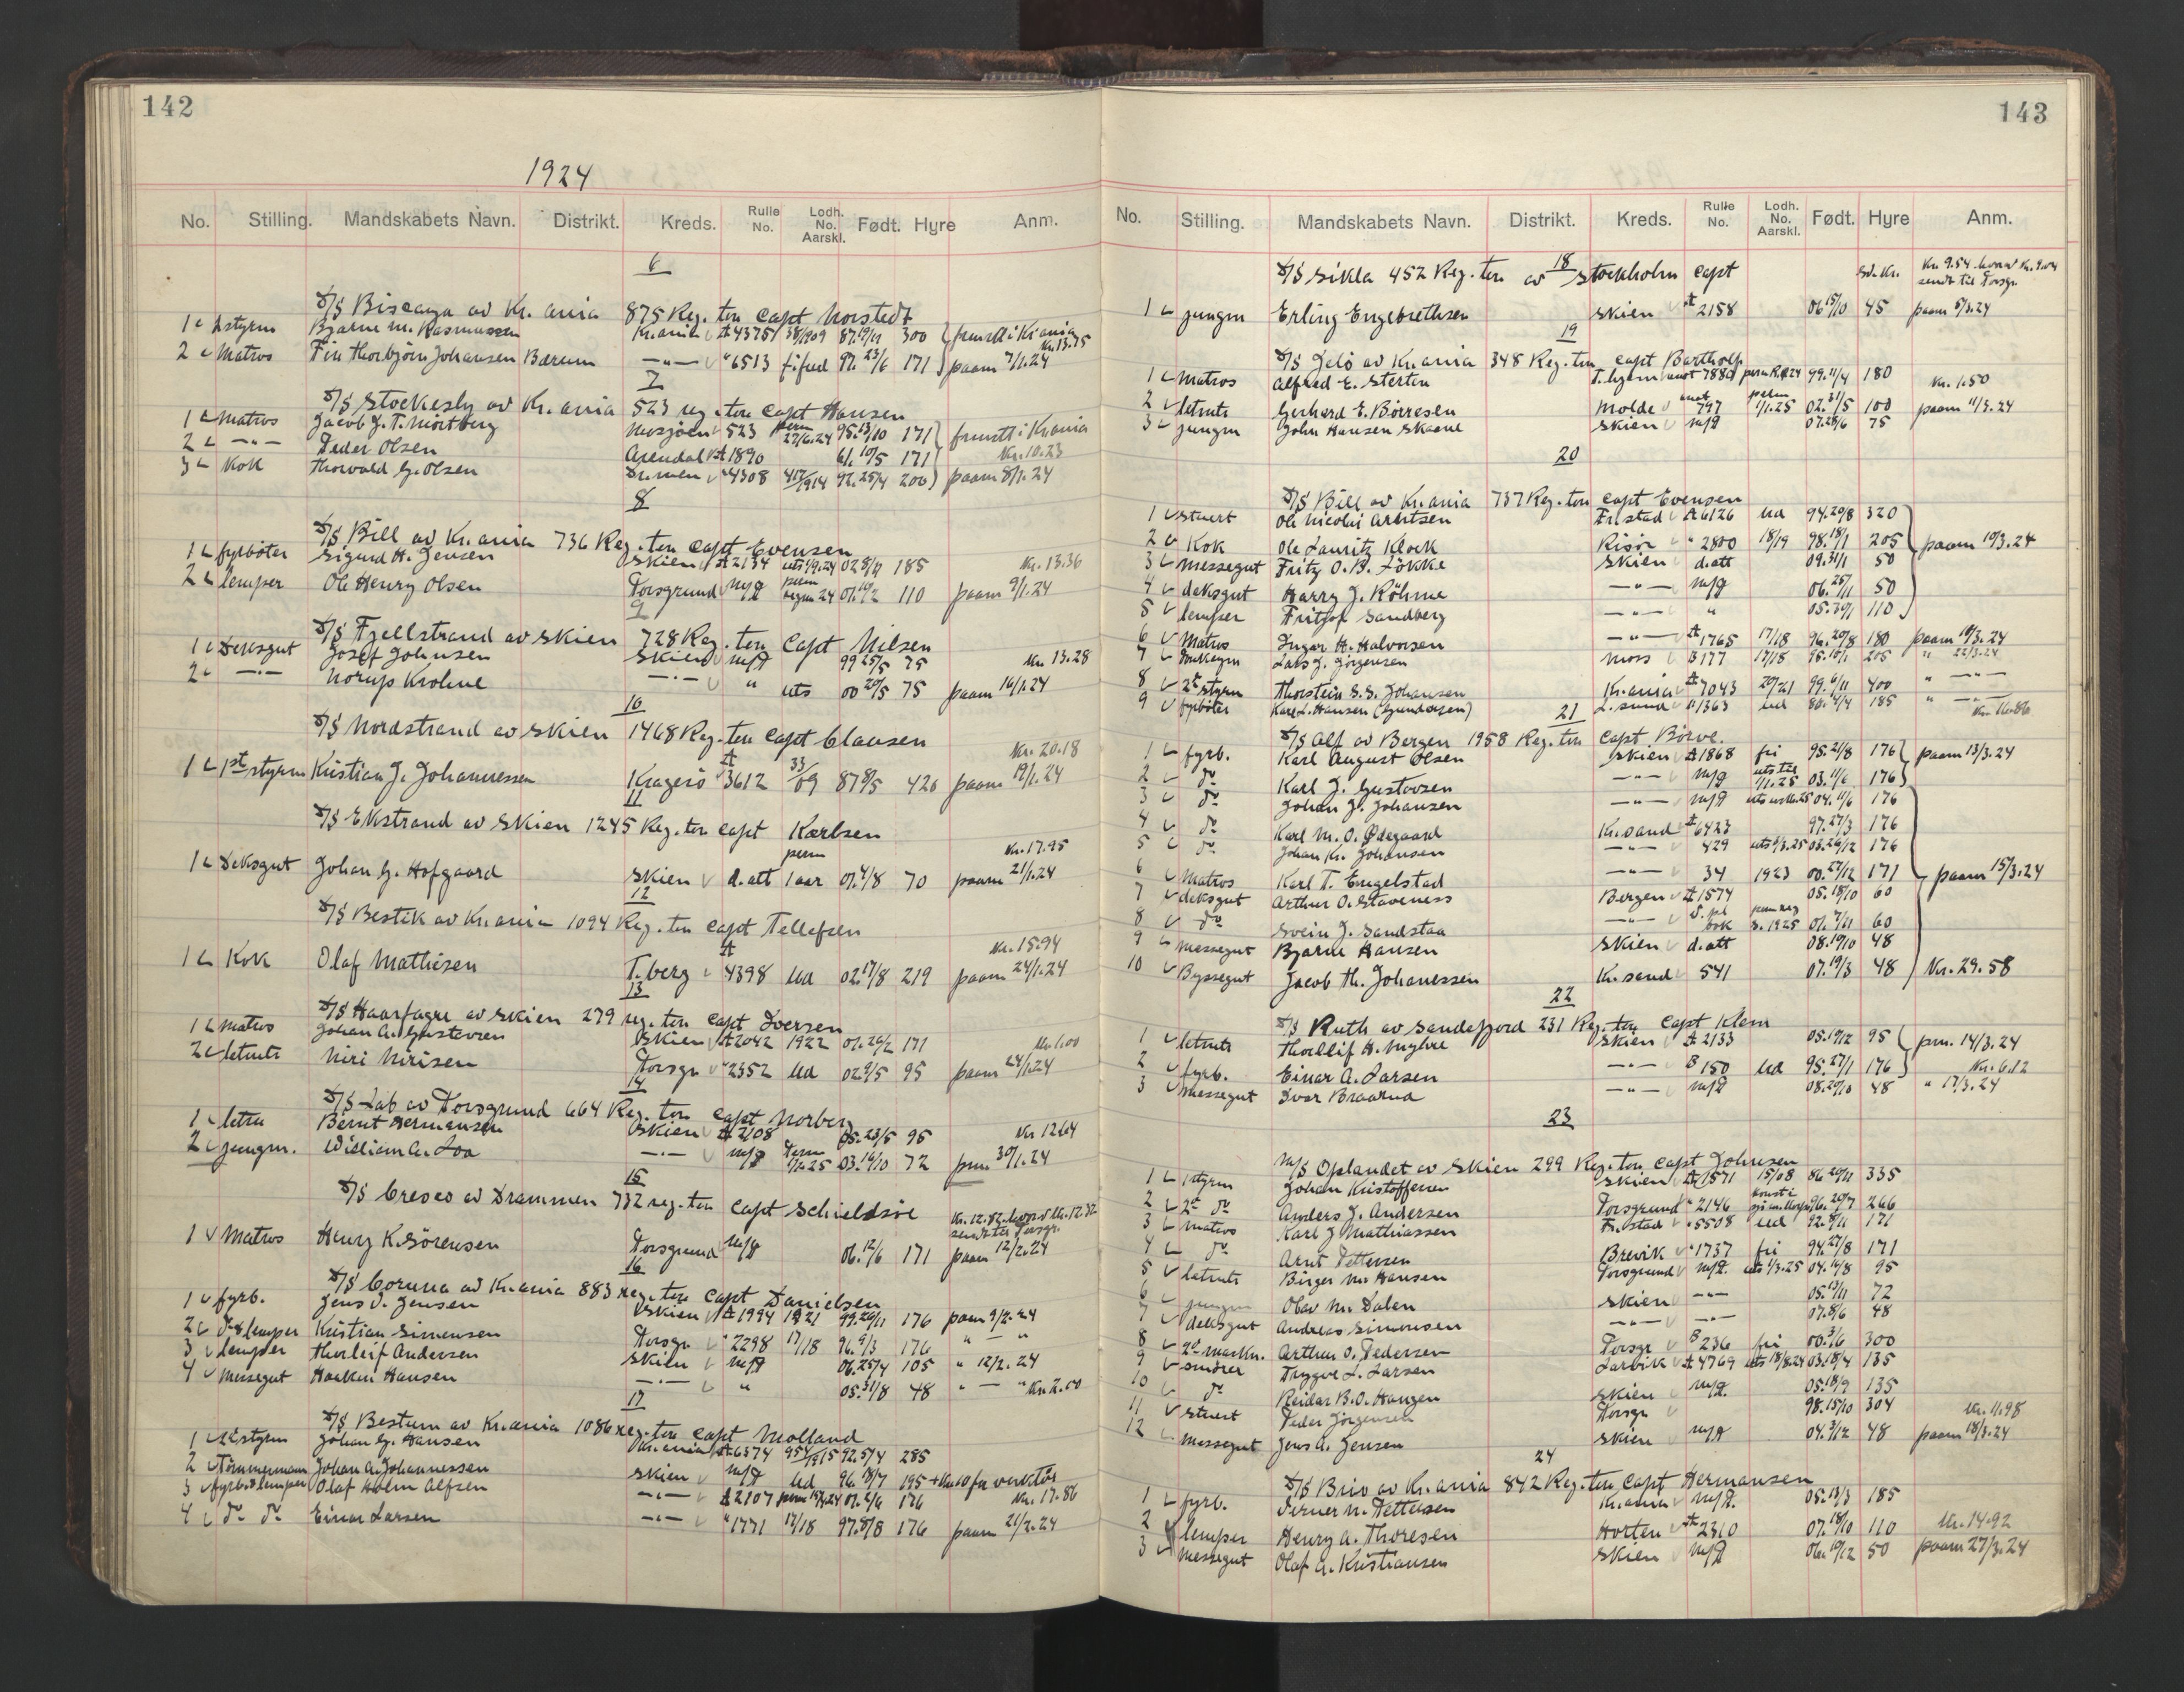 142
1924
No. Stilling. Mandskabets Navn. Distrikt. Kreds. Rulle No. Lodh. No. Aarskl. Født. Hyre Anm.
6
D/S Biscaya av Kr.ania 875 Reg. ton Capt Norstedt
1 2 styrm Bjarne M. Rasmussen Kr.ania A 4375 38/1909 300 frmstt i Kr.ania Kr. 13.75
2 Matros Fin Thorbjörn Johansen Bærum —"— " 6513 97. 23/6 171 paam 7/1.24
7
D/S Stokesby av Kr.ania 523 reg. ton Capt Hansen
1 Matros Jacob J. T. Mortberg Mosjøen 523 perm 27/6.24 95. 13/10 171 frmstt i Kr.ania
2 —"— Peder Olsen Arendal A 1890 61. 10/5 171 Kr. 10.23
3 Kok Thorvald G. Olsen Dr.men " 4308 417/1914 92. 25/4 200 paam 8/1.24
8
D/S Bill av Kr.ania 736 Reg. ton Capt Evensen
1 fyrböter Sigurd H. Jensen Skien A 2134 185 Kr. 13.36
2 lemper Ole Henry Olsen Porsgrund m/P 110 paam 9/1.24
9
D/S Fjellstrand av Skien 728 Reg. ton Capt Nilsen
1 Deksgut Josef Johnsen Skien m/P 99 25/5 75 Kr. 13.28
2 —"— Norup Krohne —"— " uts 00 20/5 75 paam 16/1.24
10
D/S Nordstrand av Skien 1468 Reg. ton Capt Clausen
1 1st styrm Kristian J. Johannessen Kragerö A 3612 33/09 87 8/5 420 Kr. 20.18 paam 19/1.24
11
D/S Ekstrand av Skien 1245 Reg. ton Capt Karlsen
1 Deksgut Johan G. Hofgaard Skien d.att perm 1 aar 07. 4/8 70 Kr. 17.95 paam 21/1.24
12
D/S Bestik av Kr.ania 1094 Reg. ton Capt Tellefsen
1 Kok Olaf Mathisen T.berg A 4398 Ud 02. 17/8 219 Kr. 15.94 paam 24/1.24
13
D/S Haarfagre av Skien 279 reg. ton Capt Iversen
1 Matros Johan A. Gustavsen Skien A 2042 1922 01. 20/2 171 Kr. 1.00
2 letmts Niri Nirisen Porsgr " 2352 Ud 02 9/5 95 paam 24/1.24
14
D/S Lab av Porsgrund 664 Reg. ton Capt Norberg
1 letm Bernt Hermansen Skien A 2108 05. 23/5 95 Kr 12.64
2 jungm. William A. Loa —"— m/P perm 1/1.25 03. 16/10 72 pm 30/1.24
15
D/S Cresco av Drammen 732 reg. ton Capt Schieldsöe
Kr. 12.82 hvorav Kr. 12.32 sendt til Porsgr.
1 Matros Henry K. Sörensen Porsgrund m/P 06. 12/6 171 paam 12/2.24
16
D/S Coruna av Kr.ania 883 reg. ton Capt Danielsen
1 fyrb. Jens O. Jensen Skien A 1994 1921 99. 20/11 176 paam 9/2.24
2 do & lemper Kristian Simensen Porsgr " 2298 17/18 96. 9/3 176 " — "
3 lemper Thorleif Andersen Skien m/P 06. 25/4 105 " 12/2.24
4 Messegut Haakon Hansen —"— " 05. 31/8 48 " — " Kr 2.00
17
D/S Bestum av Kr.ania 1086 reg. ton Capt Molland
1 2 styrm Johan G. Hansen Kr.ania A 6374 954/1915 92. 5/4 285
2 Tömmermann Johan A. Johannessen Skien m/P Ud 96. 18/7 195 + Kr. 10 for verktöi
3 fyrb & lemper Olaf Holm Alfsen —"— A 2107 176 Kr. 17.86
4 do do Einar Larsen —"— " 1771 17/18 97. 8/8 176 paam 21/2.24
143
No. Stilling. Mandskabets Navn. Distrikt. Kreds. Rulle No. Lodh. No. Aarskl. Født. Hyre Anm.
18
D/S Sikla 452 Reg. ton av Stockholm Capt sv. Kr. Kr. 9.54 hvorav Kr. 9.04 sendt til Porsgr.
1 jungm Erling Engebrethsen Skien A 2158 06 15/10 45 paam 5/3.24
19
D/S Jelö av Kr.ania 348 Reg. ton Capt Bartholf
1 Matros Alfred E. Sterten T.hjem 7880 99. 11/4 180 Kr. 1.50
2 letmts Gerhard E. Börresen Molde 797 perm 1/1.25 02. 31/5 100 paam 11/3.24
3 jungm John Hansen Skaene Skien m/P 07. 28/6 75
20
D/S Bill av Kr.ania 737 Reg. ton Capt Evensen
1 Stuert Ole Nicolai Arentsen Fr.stad A 6126 Ud 94. 29/8 320
2 Kok Ole Lauritz Klock Risör " 2800 18/19 98. 18/1 205 paam 10/3.24
3 Messegut Fritz O. B. Lökke Skien d.att 09. 31/1 50
4 deksgut Harry J. Röhme —"— m/P 06. 25/11 50
5 lemper Fritjof Sandberg —"— " 05. 30/1 110
6 Matros Ingar H. Halvorsen —"— A 1765 17/18 96. 20/8 180 paam 10/3.24
7 Lars J. Jörgensen Moss B 177 17/18 205 " 22/3.24
8 2 styrm Thorstein S. S. Johansen Kr.ania A 7043 20/21 99. 6/11 400 " —"—
9 fyrböter Karl L. Hansen (Gundersen) L.sund " 1363 Ud 80. 4/4 185 " —"—
21
D/S Alf av Bergen 1958 Reg. ton Capt Börve.
1 fyrb. Karl August Olsen Skien A 1868 fri 95. 21/8 176 paam 13/3.24
2 do Karl J. Gustavsen —"— m/P uts til 1/1.25 03. 11/6 176
3 do Johan J. Johansen —"— m/P 04. 11/6 176
4 do Karl M. O. Ødegaard Kr.sand A 6423 97. 27/3 176
5 do Johan Kr. Johansen —"— 429 176
6 Matros Karl T. Engelstad —"— 34 1923 00. 27/12 171 paam 15/3.24
7 deksgut Arthur O. Staveness Bergen A 1574 05. 18/10 60
8 do Svein J. Sandstaa —"— 01. 7/11 60
9 Messegut Bjarne Hansen Skien d.att 08. 19/10 48
10 Byssegut Jacob Th. Johanessen Kr.sand 541 07. 19/3 48 Kr. 29.58
22
D/S Ruth av Sandefjord 231 Reg. ton Capt Klem
1 letmts Thorleif H. Myhre Skien A 2133 05. 19/12 95 pm. 14/3.24
2 fyrb. Einar A. Larsen —"— B 150 Ud 95. 27/1 176 Kr. 6.12
3 Messegut Ivar Braarud —"— m/P 08. 20/10 48 " 17/3.24
23
M/S Oplandet av Skien 299 Reg. ton Capt Johnsen
1 1 styrm Johan Kristoffersen Skien A 1571 15/08 86 20/11 335
2 2 do Anders J. Andersen Porsgrund " 2146 96. 20/7 266
3 matros Karl J Matthiassen Fr.stad " 5508 Ud 92. 8/11 171
4 do Arnt Pettersen Brevik " 1737 fri 94. 27/8 171
5 letmts Birger M. Hansen Porsgrund m/P. uts 1/3.25 04. 16/8 95
6 jungm Olav M. Dalen Skien —"— 05. 13/11 72
7 deksgut Andreas Simonsen —"— —"— 07. 8/6 48
8 2 maskn. Arthur O. Pedersen Porsgr B 236 fri 00. 3/6 300
9 smörer Trygve L. Larsen Larvik A 4769 uts 18/8.24 03. 18/4 135
10 do Reidar B. O. Haugen Skien m/P. 05. 18/9 135
11 Stuert Peder Jörgensen Porsgr 98. 15/10 304 Kr. 11.98
12 Messegut Jens A. Jensen Skien m/P 04. 3/12 48 paam 18/3.24
24
D/S Brio av Kr.ania 842 Reg. ton Capt Hermansen
1 fyrb. Verner N. Pettersen Kr.ania m/P. 05. 13/3 185
2 lemper Henry A. Thoresen Horten A 2310 07. 18/10 110 Kr. 14.92
3 Messegut Olaf A. Kristiansen Skien m/P 06. 19/12 50 paam 27/3.24